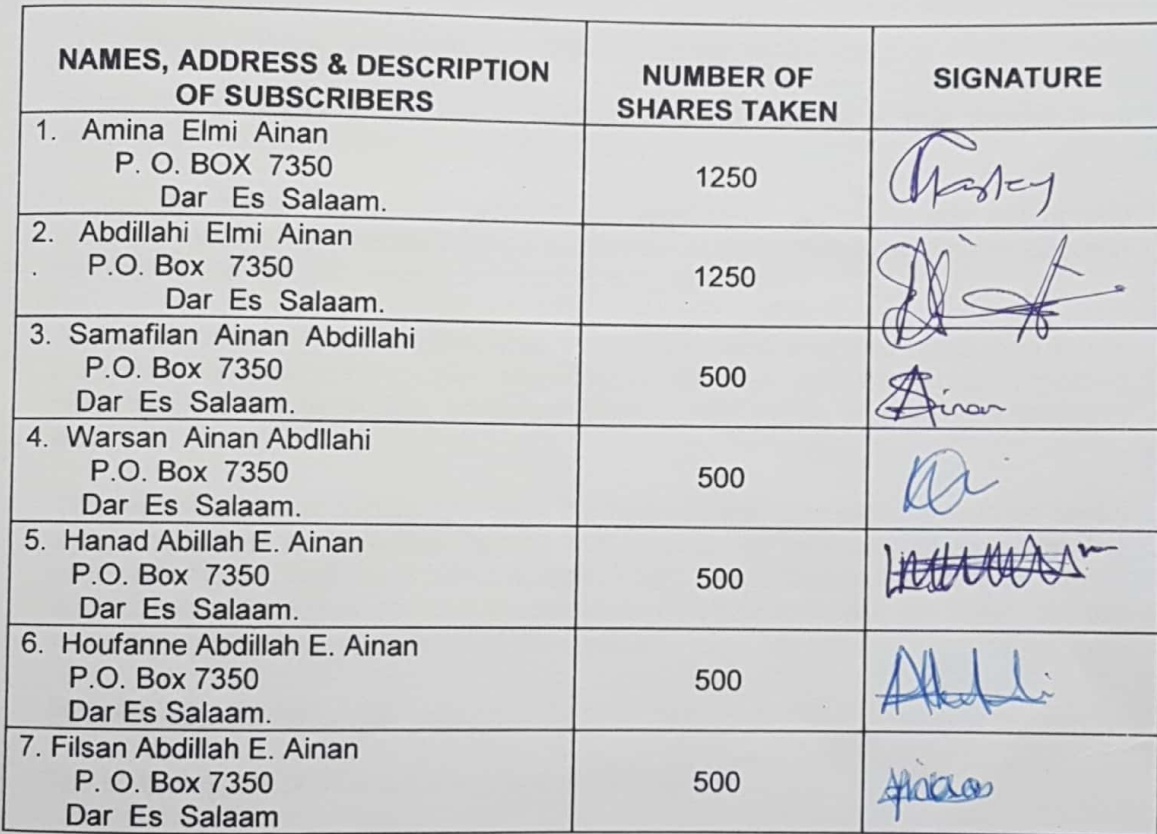 NAMES, ADDRESS & DESCRIPTION
OF SUBSCRIBERS
NUMBER OF
SHARES TAKEN
SIGNATURE
1. Amina Elmi Ainan
P. O. BOX 7350
Dar Es Salaam.
1250
2. Abdillahi Elmi Ainan
. P.O. Box 7350
Dar Es Salaam.
1250
3. Samafilan Ainan Abdillahi
P.O. Box 7350
Dar Es Salaam.
500
Ainan
4. Warsan Ainan Abdllahi
P.O. Box 7350
Dar Es Salaam.
500
5. Hanad Abillah E. Ainan
P.O. Box 7350
Dar Es Salaam.
500
6. Houfanne Abdillah E. Ainan
P.O. Box 7350
Dar Es Salaam.
500
7. Filsan Abdillah E. Ainan
P. O. Box 7350
Dar Es Salaam
500